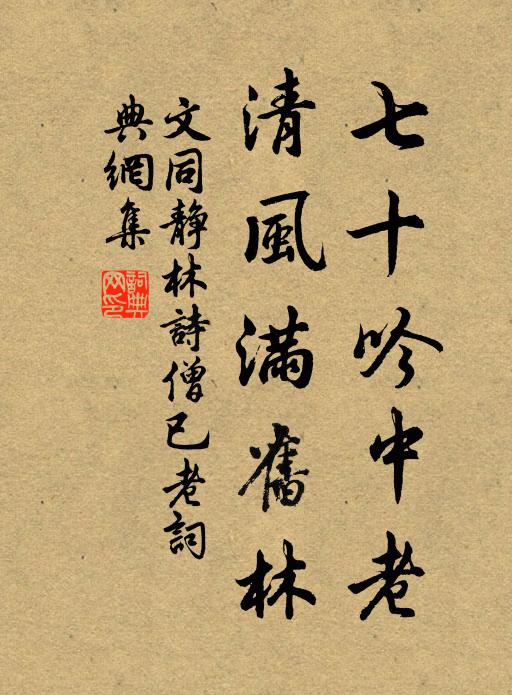 七十吟中老
清風滿舊林
文同靜林詩僧已老詞
典網集
詞典網印